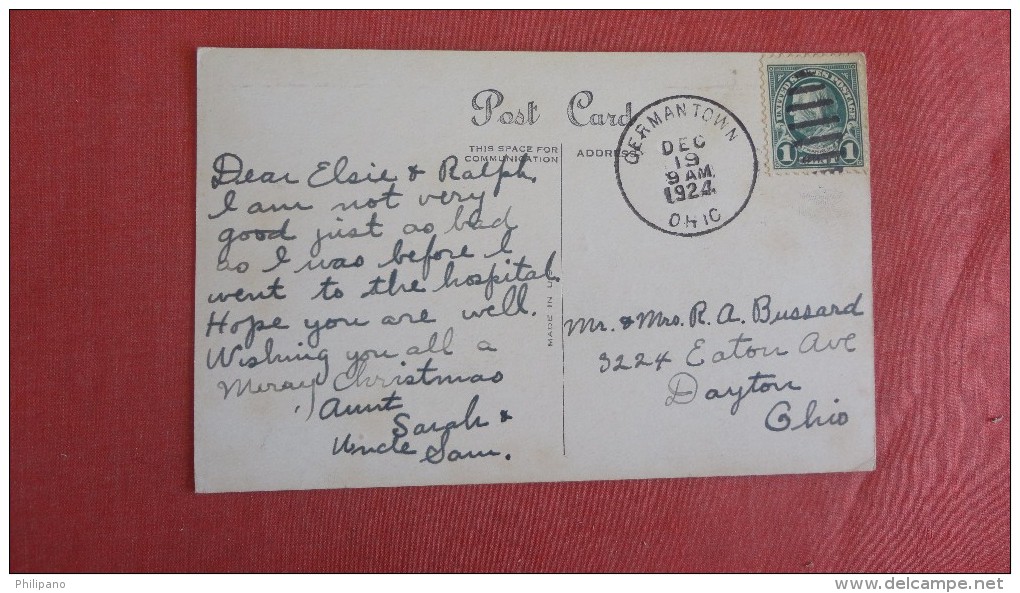 Post Card
THIS SPACE FOR
COMMUNICATION
ADDRESS
GERMANTOWN
DEC
19
9 AM.
1924
OHIO
UNITED STATES POSTAGE
1 1
Dear Elsie & Ralph.
I am not very
good just as bad
as I was before I
went to the hospital.
Hope you are well.
Wishing you all a
Meray Christmas
Aunt
Sarah &
Uncle Sam.
MADE IN U.S.
Mr. & Mrs. R. A. Bussard
3224 Eaton Ave
Dayton
Ohio
Philipano
www.delcampe.net